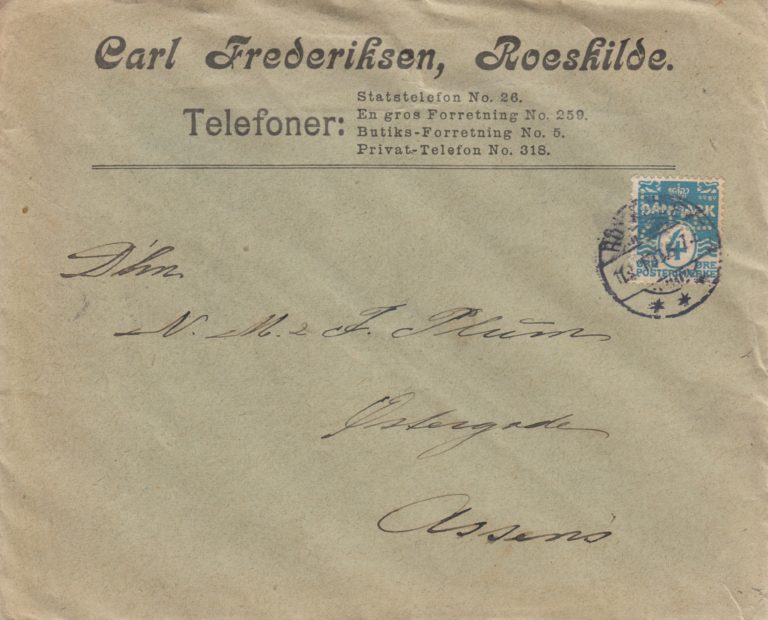 Carl Frederiksen, Roeskilde.
Telefoner:
Statstelefon No. 26.
En gros Forretning No. 259.
Butiks-Forretning No. 5.
Privat-Telefon No. 318.
DANMARK
4
ØRE ØRE
POSTFRIMÆRKE
D'hrr
N. M. & F. Plum
Østergade
Assens